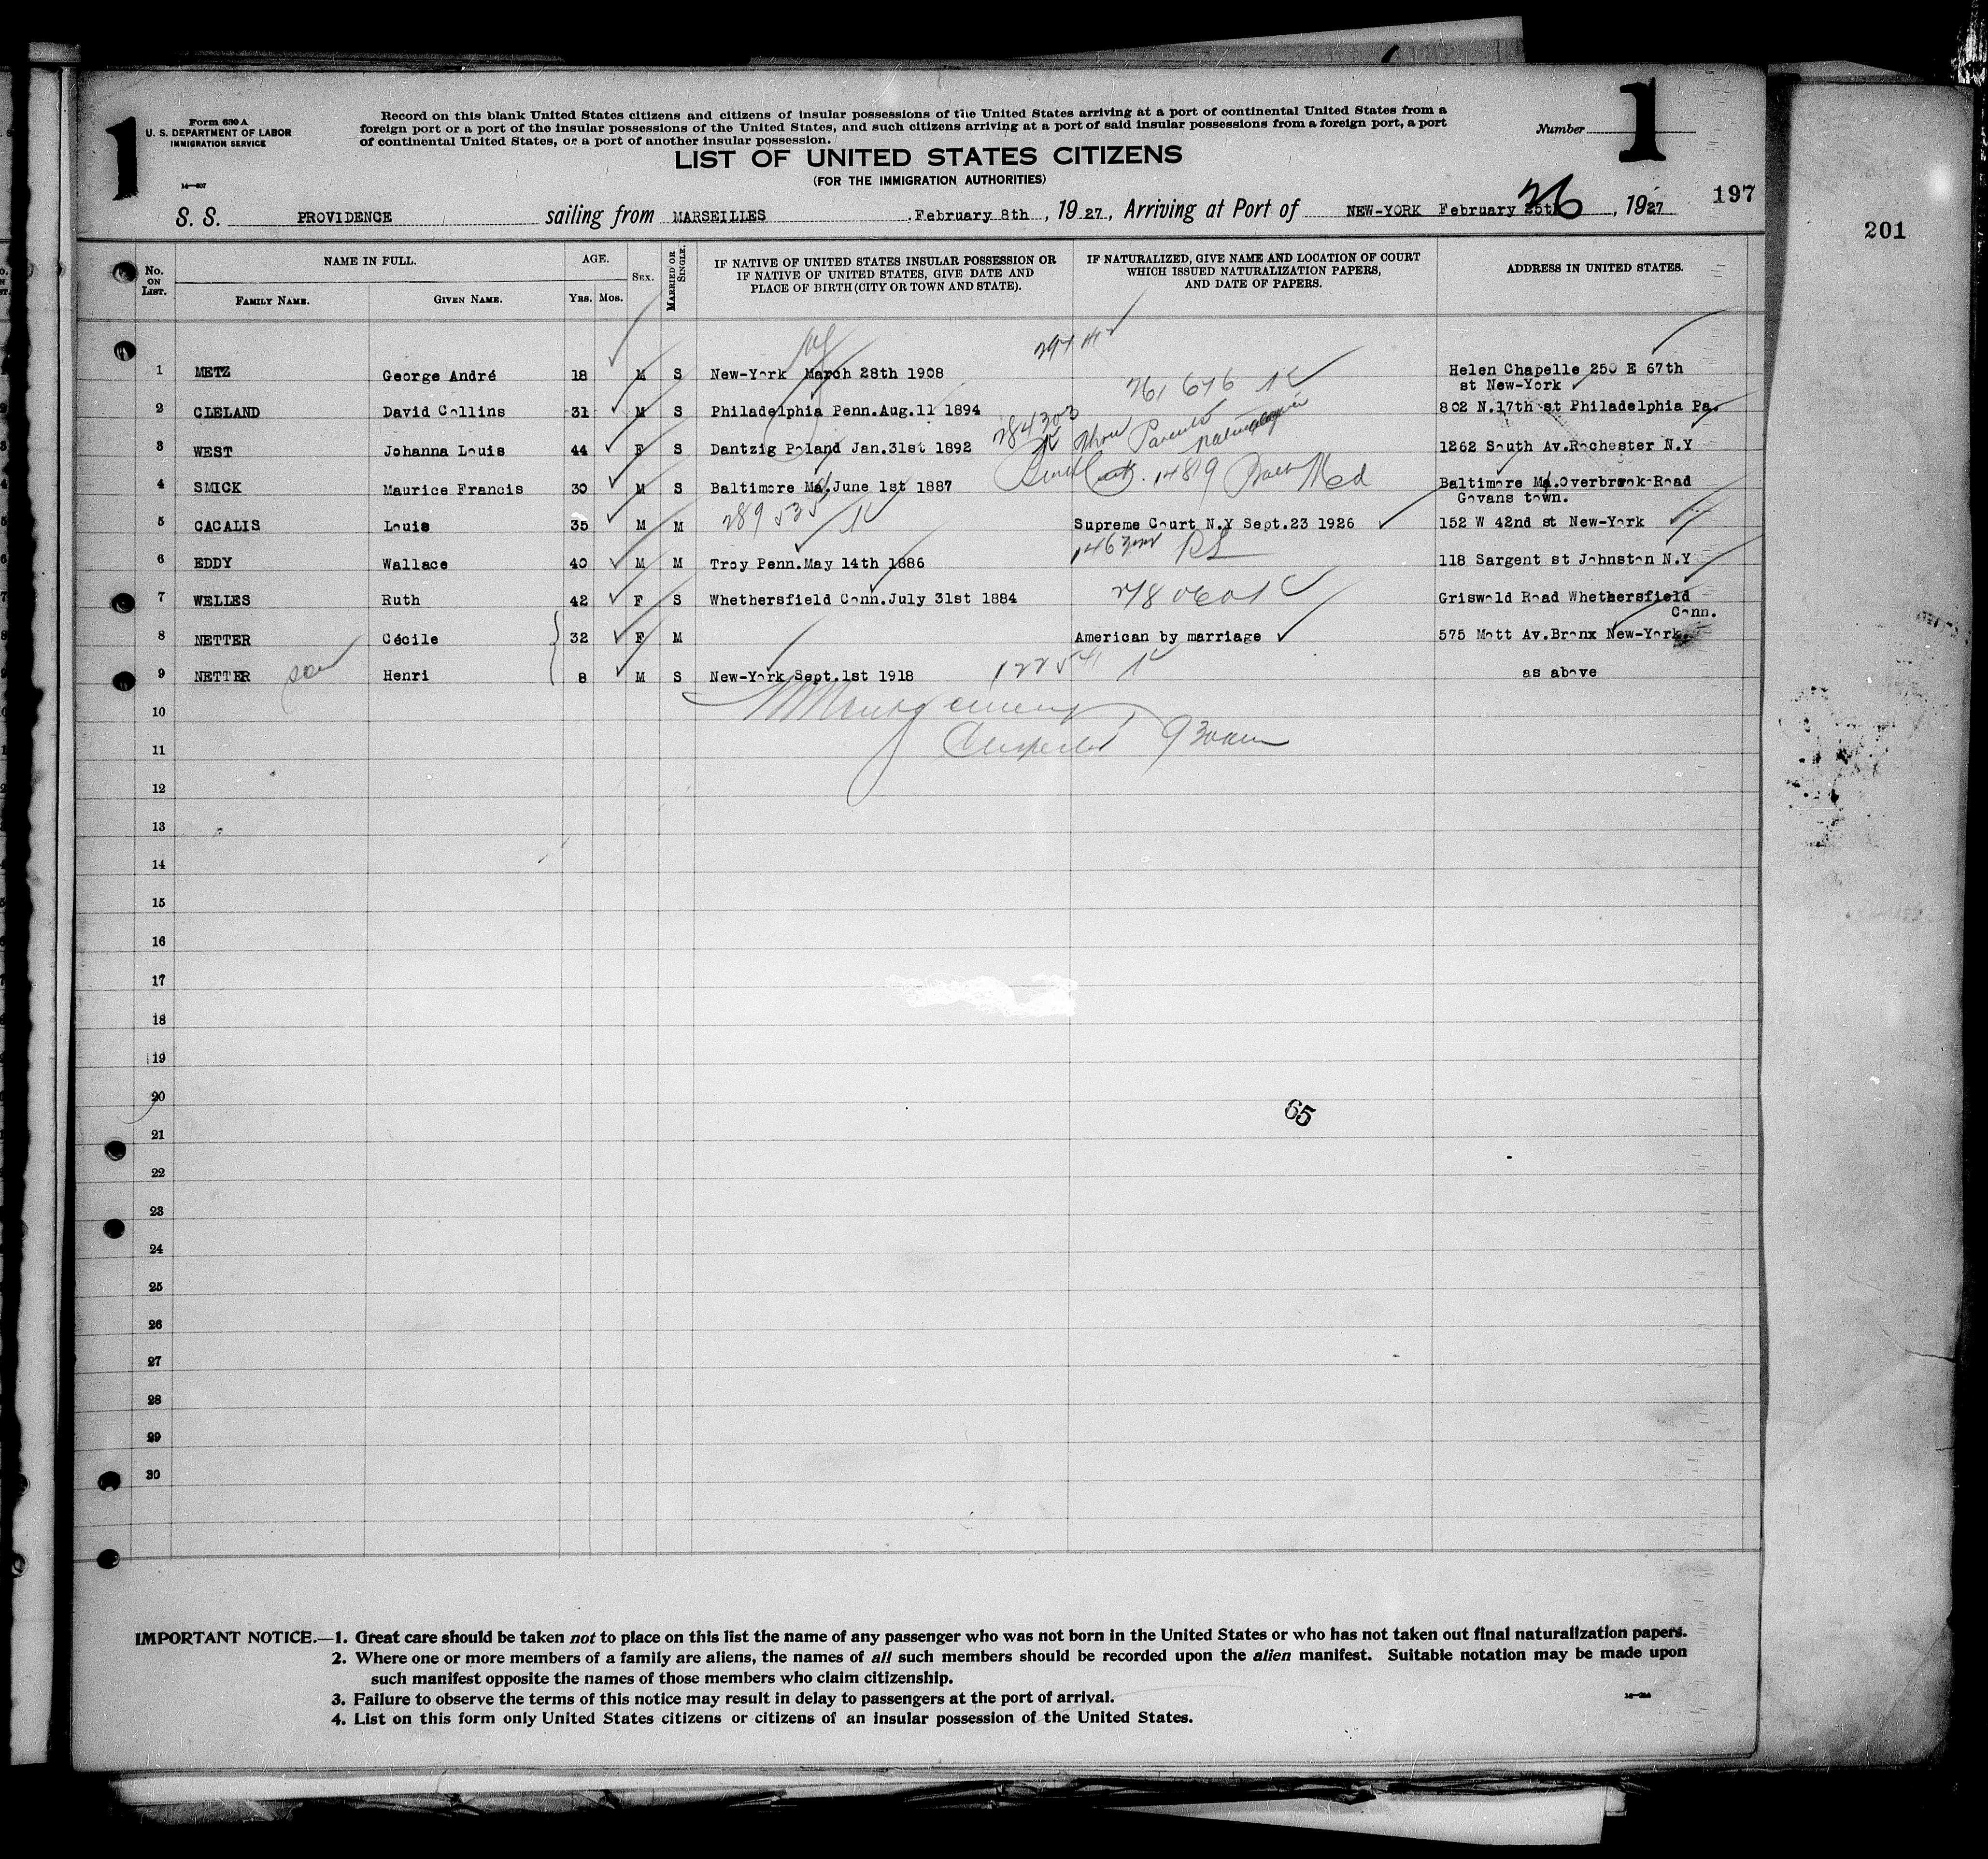 1
1
Form 630 A
U. S. DEPARTMENT OF LABOR
IMMIGRATION SERVICE
14—807
Record on this blank United States citizens and citizens of insular possessions of the United States arriving at a port of continental United States from a
foreign port or a port of the insular possessions of the United States, and such citizens arriving at a port of said insular possessions from a foreign port, a port
of continental United States, or a port of another insular possession.
Number
LIST OF UNITED STATES CITIZENS
(FOR THE IMMIGRATION AUTHORITIES)
197
201
S. S. PROVIDENCE sailing from MARSEILLES February 8th, 1927, Arriving at Port of NEW-YORK February 25th 26, 1927
No. ON LIST. NAME IN FULL. AGE. SEX. MARRIED OR SINGLE. IF NATIVE OF UNITED STATES INSULAR POSSESSION OR IF NATIVE OF UNITED STATES, GIVE DATE AND PLACE OF BIRTH (CITY OR TOWN AND STATE). IF NATURALIZED, GIVE NAME AND LOCATION OF COURT WHICH ISSUED NATURALIZATION PAPERS, AND DATE OF PAPERS. ADDRESS IN UNITED STATES.
FAMILY NAME. GIVEN NAME. YRS. MOS.
1 METZ George André 18 M S New-York March 28th 1908 Helen Chapelle 250 E 67th
st New-York
261 676
2 CLELAND David Collins 31 M S Philadelphia Penn.Aug.11 1894 802 N.17th st Philadelphia Pa.
284303 Show Parents
3 WEST Johanna Louis 44 F S Dantzig Poland Jan.31st 1892 1262 South Av.Rochester N.Y
14819
4 SMICK Maurice Francis 30 M S Baltimore Md.June 1st 1887 Baltimore Md.Overbrook-Road
Govans town.
289535
5 CACALIS Louis 35 M M Supreme Court N.Y Sept.23 1926 152 W 42nd st New-York
6 EDDY Wallace 40 M M Troy Penn.May 14th 1886 118 Sargent st Johnston N.Y
7 WELLES Ruth 42 F S Whethersfield Conn.July 31st 1884 Griswold Road Whethersfield
Conn.
8 NETTER Cécile 32 F M American by marriage 575 Mott Av.Bronx New-York.
9 NETTER son Henri 8 M S New-York Sept.1st 1918 122541 as above
10
Montgomery
11
Inspector 930am
12
13
14
15
16
17
18
19
20
65
21
22
23
24
25
26
27
28
29
30
IMPORTANT NOTICE.—1. Great care should be taken not to place on this list the name of any passenger who was not born in the United States or who has not taken out final naturalization papers.
2. Where one or more members of a family are aliens, the names of all such members should be recorded upon the alien manifest. Suitable notation may be made upon
such manifest opposite the names of those members who claim citizenship.
3. Failure to observe the terms of this notice may result in delay to passengers at the port of arrival.
4. List on this form only United States citizens or citizens of an insular possession of the United States.